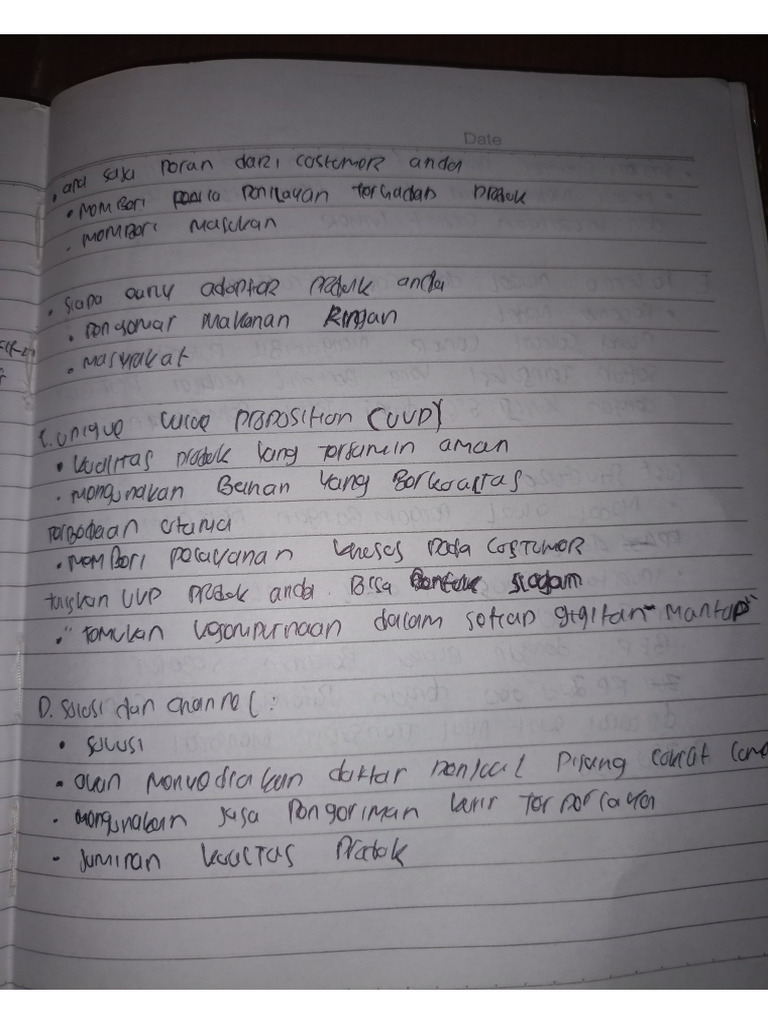 Date
• apa saja peran dari costumer anda
• Memberi penilayan terhadap produk
• Memberi masukan
• siapa early adopter produk anda
• Pengemar Makanan Ringan
• masyrakat
C. unique value proposition (UVP)
• kualitas produk yang terjamin aman
• mengunakan Bahan yang Berkualitas
Perbedaan utama
• Memberi pelayanan khusus pada costumer
tuliskan UVP produk anda. Bisa Bentuk slogam
• " temukan kesempurnaan dalam setiap gigitan - Mantap "
D. solusi dan channel :
• solusi
• akan Menyediakan daftar penjual Pisang coklat
• mengunakan jasa Pengiriman kurir terpercaya
• Jaminan kualitas Produk